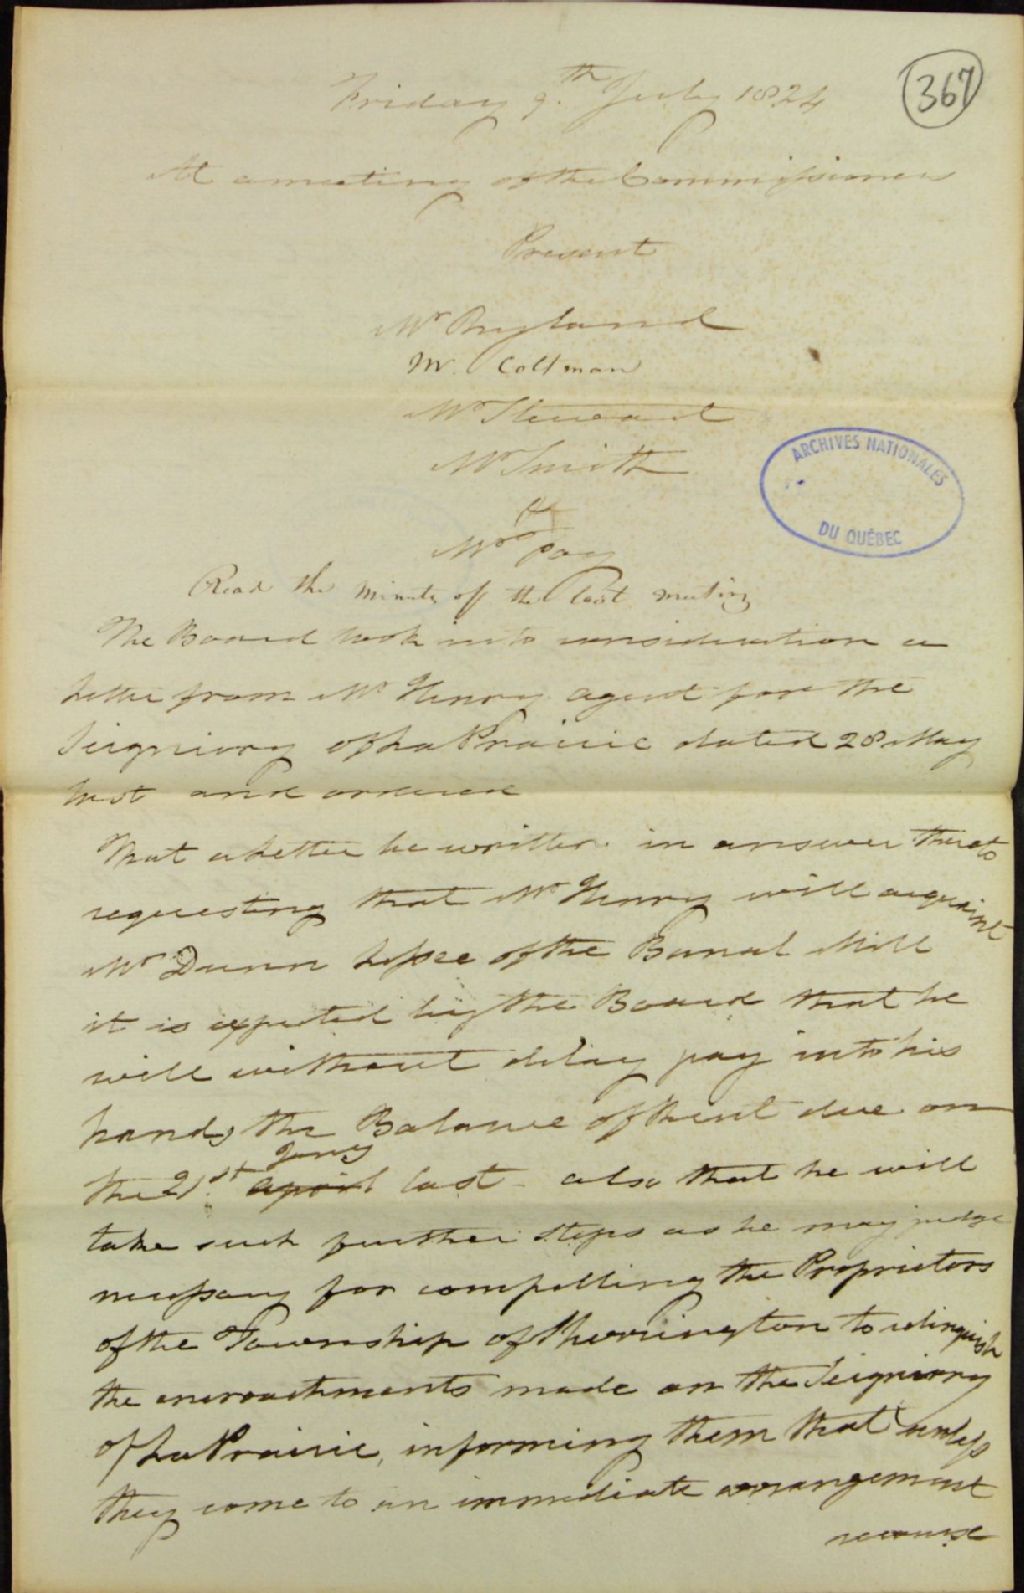 367
Friday 9.th July 1824
At a meeting of the Commissioners
Present
Mr Ryland
Mr. Coltman
Mr Steward
Mr Smith
&
Mr
Read the Minutes of the last meeting
The Board took into consideration a
Letter from Mr Henry agent for the
Seigniory of La Prairie dated 28 May
last and ordered
That a Letter be written in answer thereto
requesting that Mr Henry will acquaint
Mr Dunn Lessee of the Banal Mill
it is expected by the Board that he
will without delay pay into his
hands the Balance of Rent due on
the 21.st april Jany last - also that he will
take such further steps as he may judge
necessary for compelling the Proprietors
of the Township of Sherrington to relinquish
the encroachments made on the Seigniory
of La Prairie, informing them that unless
they come to an immediate arrangement
recourse
ARCHIVES NATIONALES
DU QUÉBEC